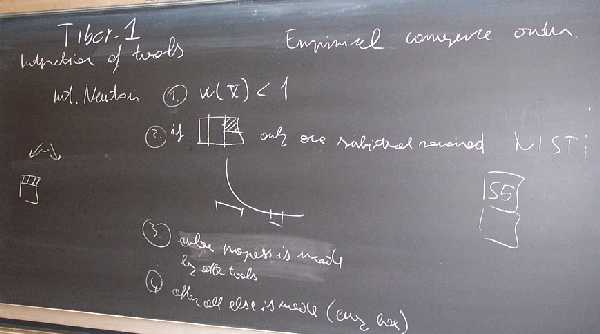 Tibor-1
Empirical convergence order.
Integration of tools
int. Newton ① w(X) < 1
② if only one subinterval removed
S5
③ when progress is made
by other tools
④ after all else is made (any box)